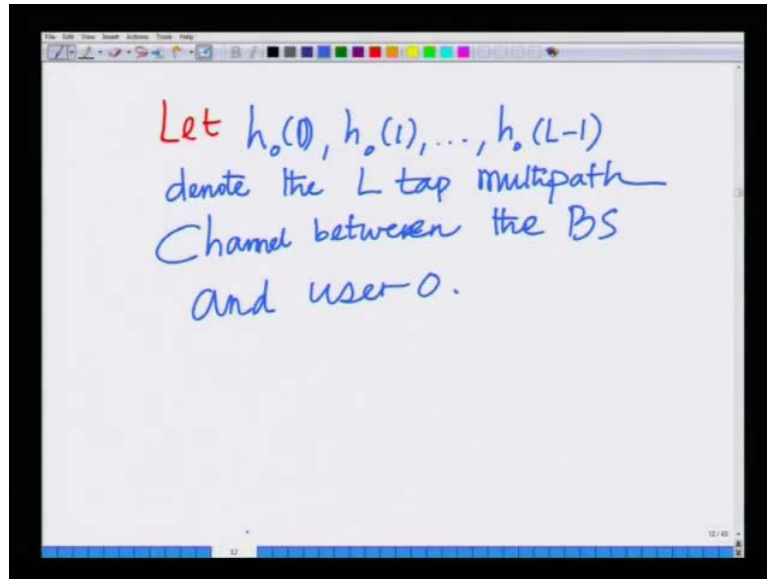 File Edit View Insert Actions Tools Help
Let h₀(0), h₀(1), ..., h₀(L-1)
denote the L tap multipath
Channel between the BS
and user 0.
12
12/45